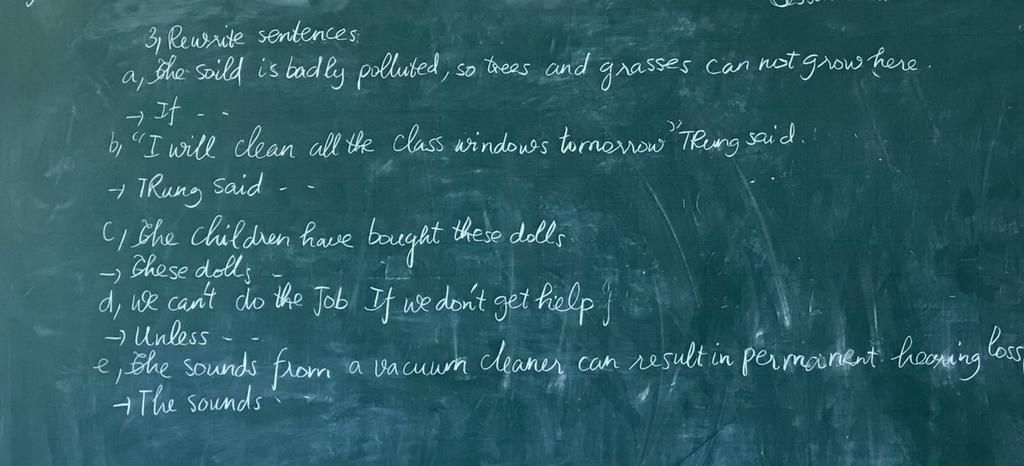 3, Rewrite sentences.
a, The soild is badly polluted, so trees and grasses can not grow here.
→ If - -
b, "I will clean all the class windows tomorrow" TRung said.
→ TRung said - -
c, The children have bought these dolls.
→ These dolls -
d, we can't do the Job If we don't get help
→ Unless - -
e, The sounds from a vacuum cleaner can result in permanent hearing loss
→ The sounds